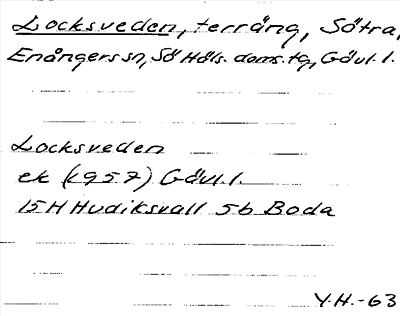 Locksveden, terräng, Sötra,
Enångers sn, Sö Häls. doms. tg, Gävl. l.
Locksveden
ek (1957) Gävl. l.
15H Hudiksvall 5b Boda
Y.H. -63